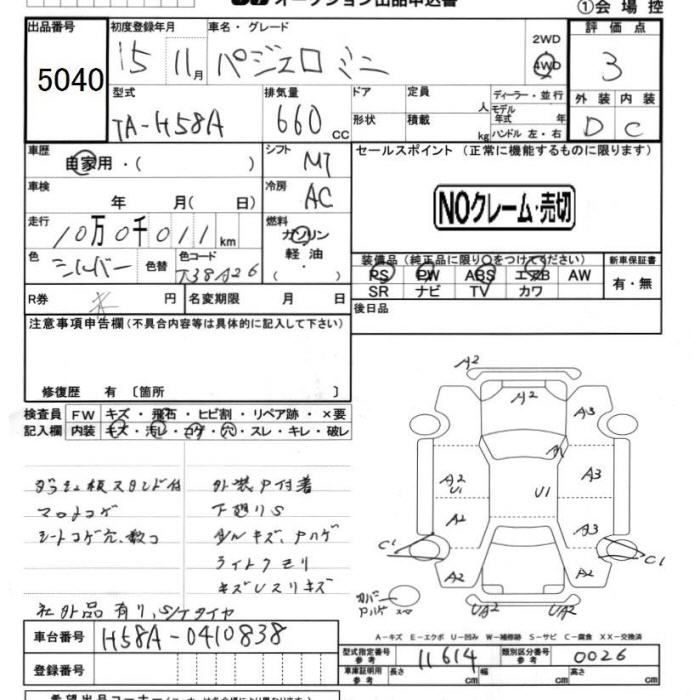 オークション出品申込書
①会場控
出品番号 初度登録年月 車名・グレード 2WD 評価点
5040 15 11月 パジェロミニ 4WD 3
型式 排気量 ドア 定員 人 ディーラー・並行 外装 内装
TA-H58A 660cc 形状 積載 kg モデル年式 年 ハンドル 左・右 D C
車歴 自家用・( ) シフト MT セールスポイント (正常に機能するものに限ります)
車検 年 月( 日) 冷房 AC
NOクレーム・売切
走行 10万0千011km 燃料 ガソリン
軽油
( ・ )
色 シルバー 色替 色コード T38A26
装備品(純正品に限り○をつけてください) 新車保証書
PS PW ABS エアB AW 有・無
SR ナビ TV カワ
R券 円 名変期限 月 日 後日品
注意事項申告欄(不具合内容等は具体的に記入して下さい)
修復歴 有 〔箇所 〕
検査員 FW キズ・飛石・ヒビ割・リペア跡・×要
記入欄 内装 キズ・汚レ・コゲ・穴・スレ・キレ・破レ
外装P付着
下廻りS
シートコゲ穴、数コ
ライトクモリ
社外品有り、S/Tタイヤ
A2
A2
A3
A2 U1 U1 A3
A2 A3
C1 C1
A2 A2
カバー
Pハゲ
UA2 UA2
A-キズ E-エクボ U-凹み W-補修跡 S-サビ C-腐食 XX-交換済
車台番号 H58A-0410838
型式指定番号 参考 11614 類別区分番号 参考 0026
登録番号 車庫証明用 参考 長さ cm 幅 cm 高さ cm